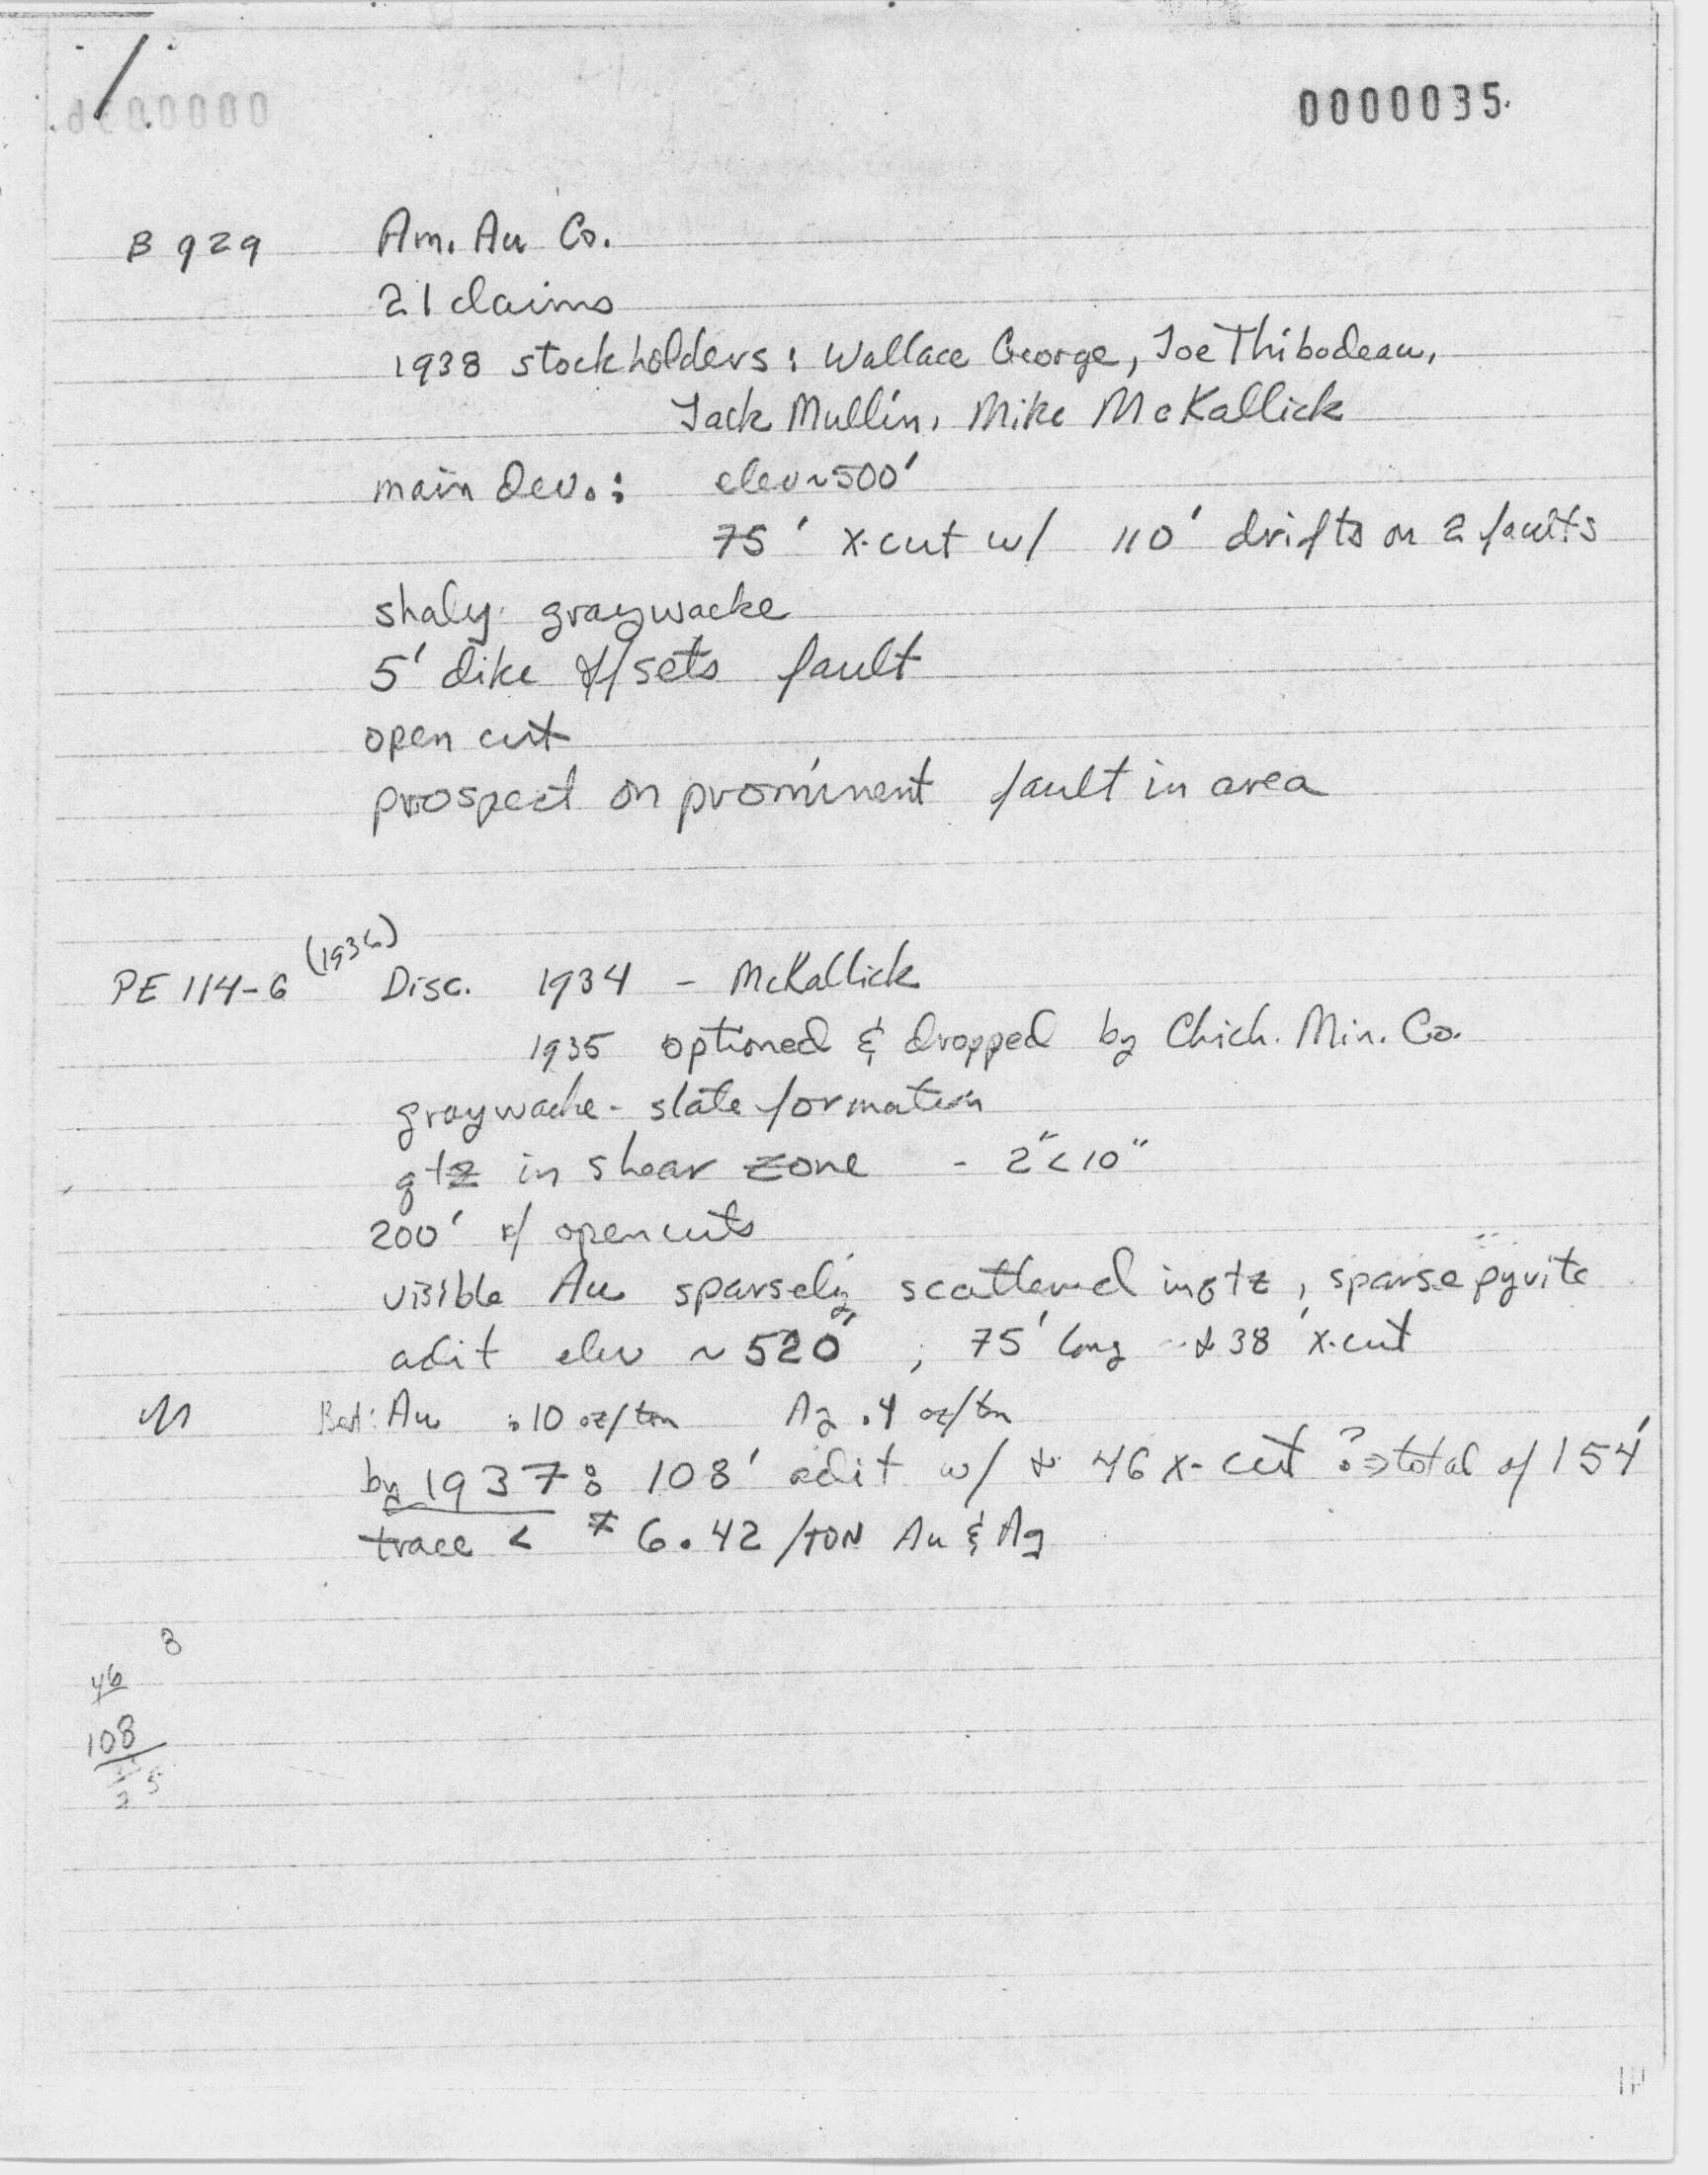 0000035
B 929 Am. Au Co.
21 claims
1938 stockholders: Wallace George, Joe Thibodeau,
Jack Mullin, Mike McKallick
main dev.: elev ~500'
75' x-cut w/ 110' drifts on 2 faults
shaly graywacke
5' dike offsets fault
open cut
prospect on prominent fault in area
PE 114-6 (1936) Disc. 1934 - McKallick
1935 optioned & dropped by Chich. Min. Co.
graywacke - slate formation
qtz in shear zone - 2"<10"
200' of opencuts
visible Au sparsely scattered in qtz, sparse pyrite
adit elev ~520', 75' long & 38' x-cut
Best: Au .10 oz/ton Ag .4 oz/ton
by 1937: 108' adit w/ & 46 x-cut ? ⇒ total of 154'
trace < $6.42/TON Au & Ag
3
46
108